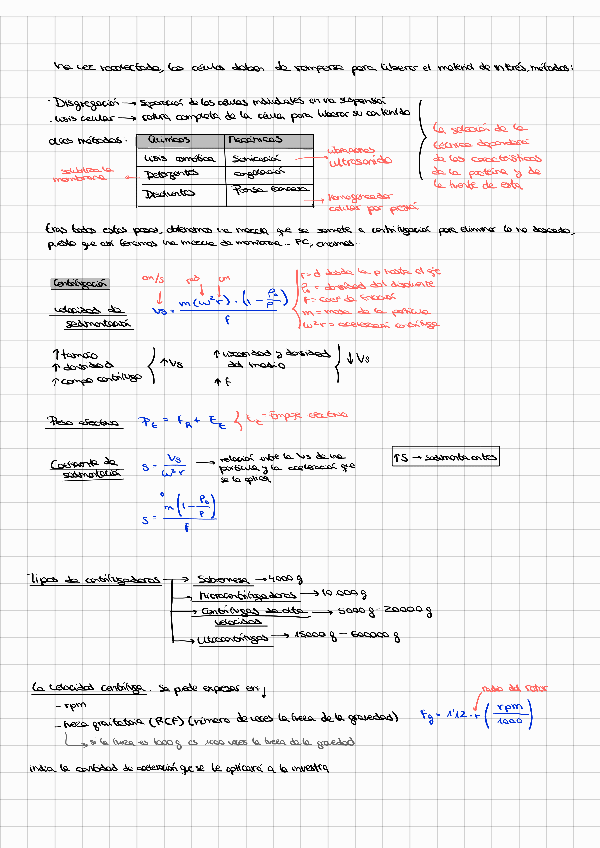 Una vez recolectado, las células deben de romperse para liberar el material de interés, métodos:
· Disgregación → separación de las células individuales en una suspensión
· Lisis celular → rotura completa de la célula para liberar su contenido
La selección de la
técnica dependerá
de las características
de la proteína y de
la fuente de esta
otros métodos:
Químicos Mecánicos
Lisis osmótica Sonicación
Detergentes congelación
Disolventes Prensa francesa
solubiliza la
membrana
vibraciones
ultrasonido
homogeneizador
celular por presión
Tras todos estos pasos, obtenemos una mezcla que se somete a centrifugación para eliminar lo no deseado,
puesto que así tenemos una mezcla de membrana... PC, orgánulos.
Centrifugación
velocidad de
sedimentación
cm/s rad cm
Vs = m(ω²r) · (1 - ρ₀/ρ) / f
r = d desde la p hasta el eje
ρ₀ = densidad del disolvente
f = coef de fricción
m = masa de la partícula
ω²r = aceleración centrífuga
↑ tamaño
↑ densidad
↑ campo centrífugo
↑ Vs
↑ viscosidad y densidad
del medio
↑ f
↓ Vs
Peso efectivo
P_E = F_R + E_E
E_E - Empuje efectivo
Coeficiente de
sedimentación
S = Vs / ω²r
→ relación entre la Vs de una
partícula y la aceleración que
se le aplica
↑S → sedimenta antes
S = m(1 - ρ₀/ρ) / f
Tipos de centrifugadoras
→ Sobremesa → 4000 g
→ Microcentrifugadoras → 10 000 g
→ Centrífugas de alta → 5000 g - 20000 g
velocidad
→ Ultracentrífugas → 15000 g - 600000 g
La velocidad centrífuga. se puede expresar en ↓
- rpm
- fuerza gravitatoria (RCF) (número de veces la fuerza de la gravedad)
→ si la fuerza es 1000 g es 1000 veces la fuerza de la gravedad
radio del rotor
Fg = 1'12 · r (rpm / 1000)
indica la cantidad de aceleración que se le aplicará a la muestra